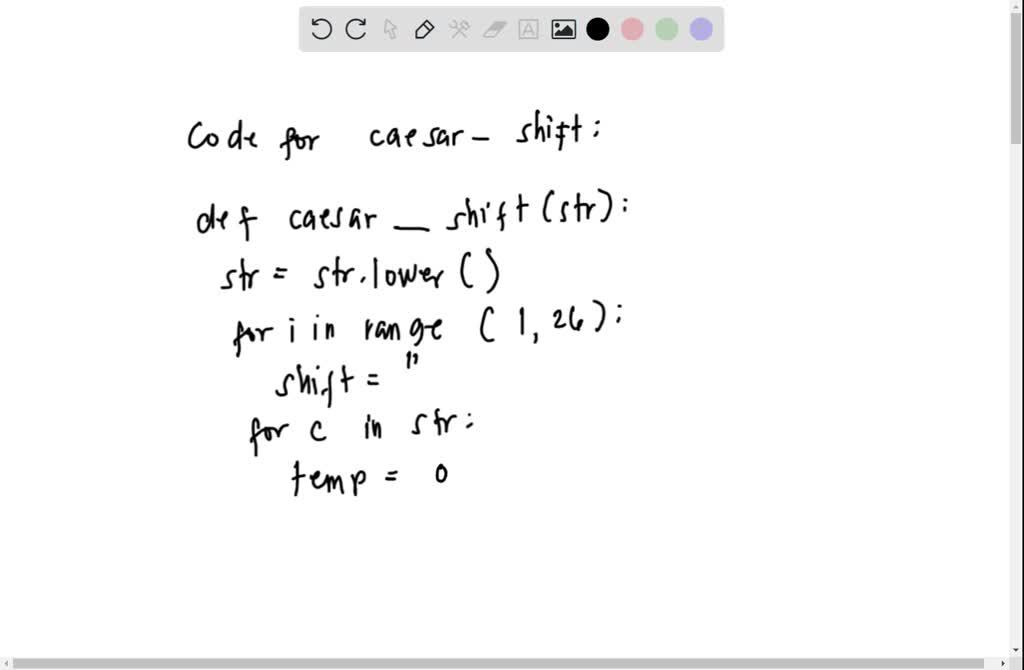 Code for caesar - shift:
def caesar _ shift (str):
str = str.lower ()
for i in range ( 1, 26 ):
shift = ''
for c in str:
temp = 0